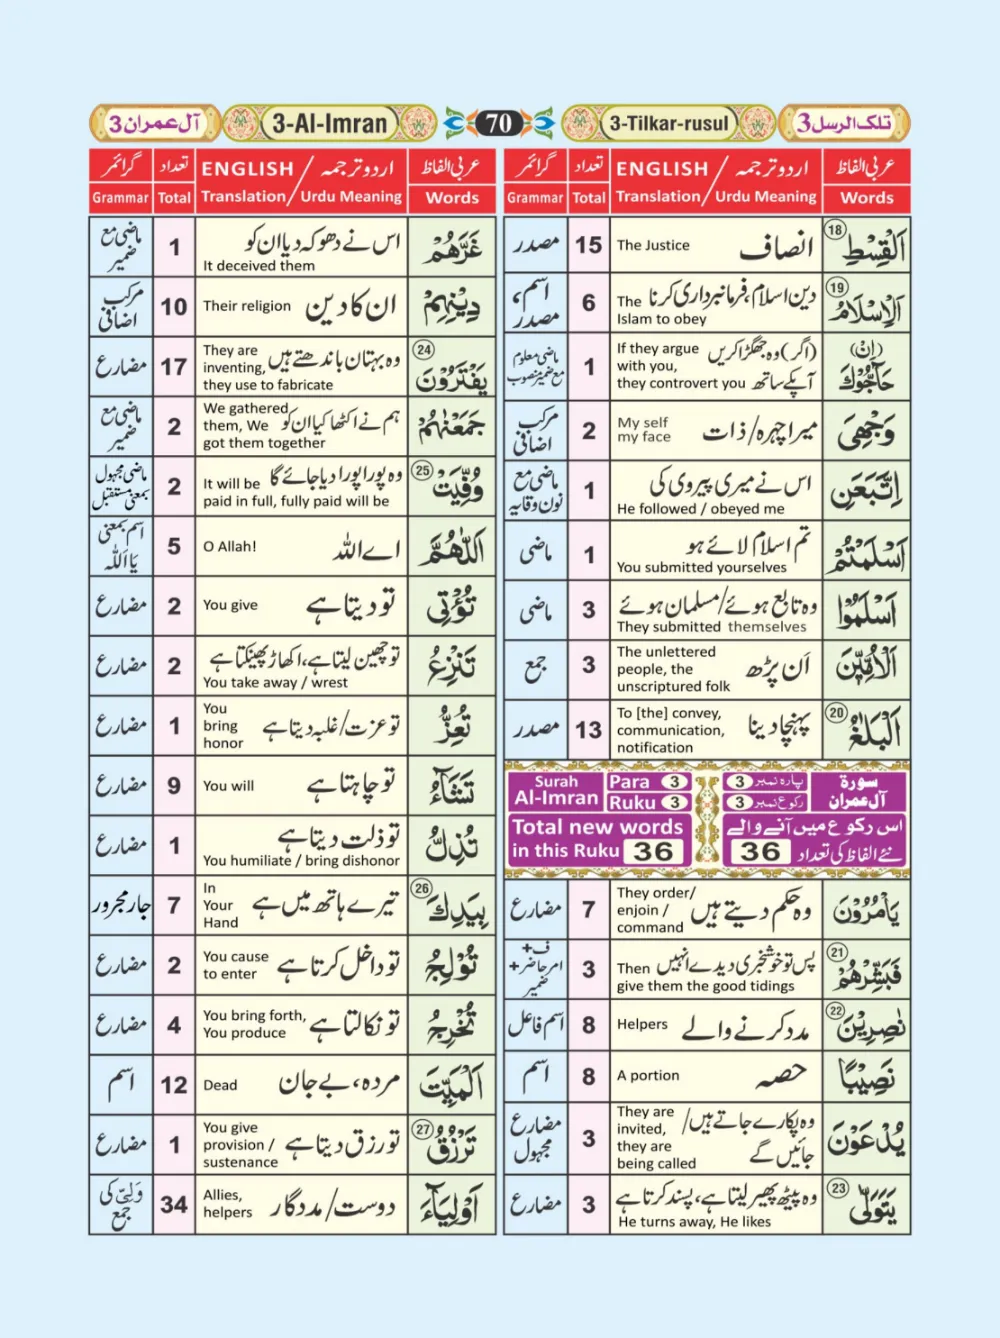 آل عمران 3
3-Al-Imran
70
3-Tilkar-rusul
تلک الرسل 3
عربی الفاظ
اردو ترجمہ / ENGLISH
تعداد
گرائمر
Words
Translation / Urdu Meaning
Total
Grammar
18 اَلْقِسْطِ
انصاف
The Justice
15
مصدر
19 اَلْاِسْلَامُ
دین اسلام، فرمانبرداری کرنا
The
Islam to obey
6
اسم، مصدر
(اِنْ) حَآجُّوْكَ
(اگر) وہ جھگڑا کریں
آپکے ساتھ
If they argue
with you,
they controvert you
1
ماضی معلوم
مع ضمیر منصوب
وَجْهِیَ
میرا چہرہ/ذات
My self
my face
2
مرکب اضافی
اِتَّبَعَنِ
اس نے میری پیروی کی
He followed / obeyed me
1
ماضی مع
نون وقایہ
اَسْلَمْتُمْ
تم اسلام لائے ہو
You submitted yourselves
1
ماضی
اَسْلَمُوْا
وہ تابع ہوئے/مسلمان ہوئے
They submitted themselves
3
ماضی
اَلْاُمِّیّٖنَ
اَن پڑھ
The unlettered
people, the
unscriptured folk
3
جمع
20 اَلْبَلٰغُ
پہنچا دینا
To [the] convey,
communication,
notification
13
مصدر
Surah
Al-Imran
Para 3
Ruku 3
3 پارہ نمبر
3 رکوع نمبر
سورۃ
آل عمران
Total new words
in this Ruku 36
اس رکوع میں آنے والے
نئے الفاظ کی تعداد 36
یَاْمُرُوْنَ
وہ حکم دیتے ہیں
They order/
enjoin /
command
7
مضارع
21 فَبَشِّرْهُمْ
پس تو خوشخبری دیدے انہیں
Then
give them the good tidings
3
ف+
امر حاضر+
ضمیر
22 نٰصِرِیْنَ
مدد کرنے والے
Helpers
8
اسم فاعل
نَصِیْبًا
حصہ
A portion
8
اسم
یُدْعَوْنَ
وہ پکارے جاتے ہیں/
جائیں گے
They are
invited,
they are
being called
3
مضارع
مجہول
23 یَتَوَلّٰی
وہ پیٹھ پھیر لیتا ہے، پسند کرتا ہے
He turns away, He likes
3
مضارع
عربی الفاظ
اردو ترجمہ / ENGLISH
تعداد
گرائمر
Words
Translation / Urdu Meaning
Total
Grammar
غَرَّهُمْ
اس نے دھوکہ دیا ان کو
It deceived them
1
ماضی مع
ضمیر
دِیْنِهِمْ
ان کا دین
Their religion
10
مرکب
اضافی
24 یَفْتَرُوْنَ
وہ بہتان باندھتے ہیں
They are
inventing,
they use to fabricate
17
مضارع
جَمَعْنٰهُمْ
ہم نے اکٹھا کیا ان کو
We gathered
them, We
got them together
2
ماضی مع
ضمیر
25 وُفِّیَتْ
وہ پورا پورا دیا جائے گا
It will be
paid in full, fully paid will be
2
ماضی مجہول
بمعنی مستقبل
اَللّٰهُمَّ
اے اللہ
O Allah!
5
اسم بمعنی
یَا اَللّٰہ
تُؤْتِی
تو دیتا ہے
You give
2
مضارع
تَنْزِعُ
تو چھین لیتا ہے، اکھاڑ پھینکتا ہے
You take away / wrest
2
مضارع
تُعِزُّ
تو عزت/غلبہ دیتا ہے
You
bring
honor
1
مضارع
تَشَآءُ
تو چاہتا ہے
You will
9
مضارع
تُذِلُّ
تو ذلت دیتا ہے
You humiliate / bring dishonor
1
مضارع
26 بِیَدِكَ
تیرے ہاتھ میں ہے
In
Your
Hand
7
جار مجرور
تُوْلِجُ
تو داخل کرتا ہے
You cause
to enter
2
مضارع
تُخْرِجُ
تو نکالتا ہے
You bring forth,
You produce
4
مضارع
اَلْمَیِّتَ
مردہ، بے جان
Dead
12
اسم
27 تَرْزُقُ
تو رزق دیتا ہے
You give
provision /
sustenance
1
مضارع
اَوْلِیَآءَ
دوست/مددگار
Allies,
helpers
34
وَلِیّ کی
جمع